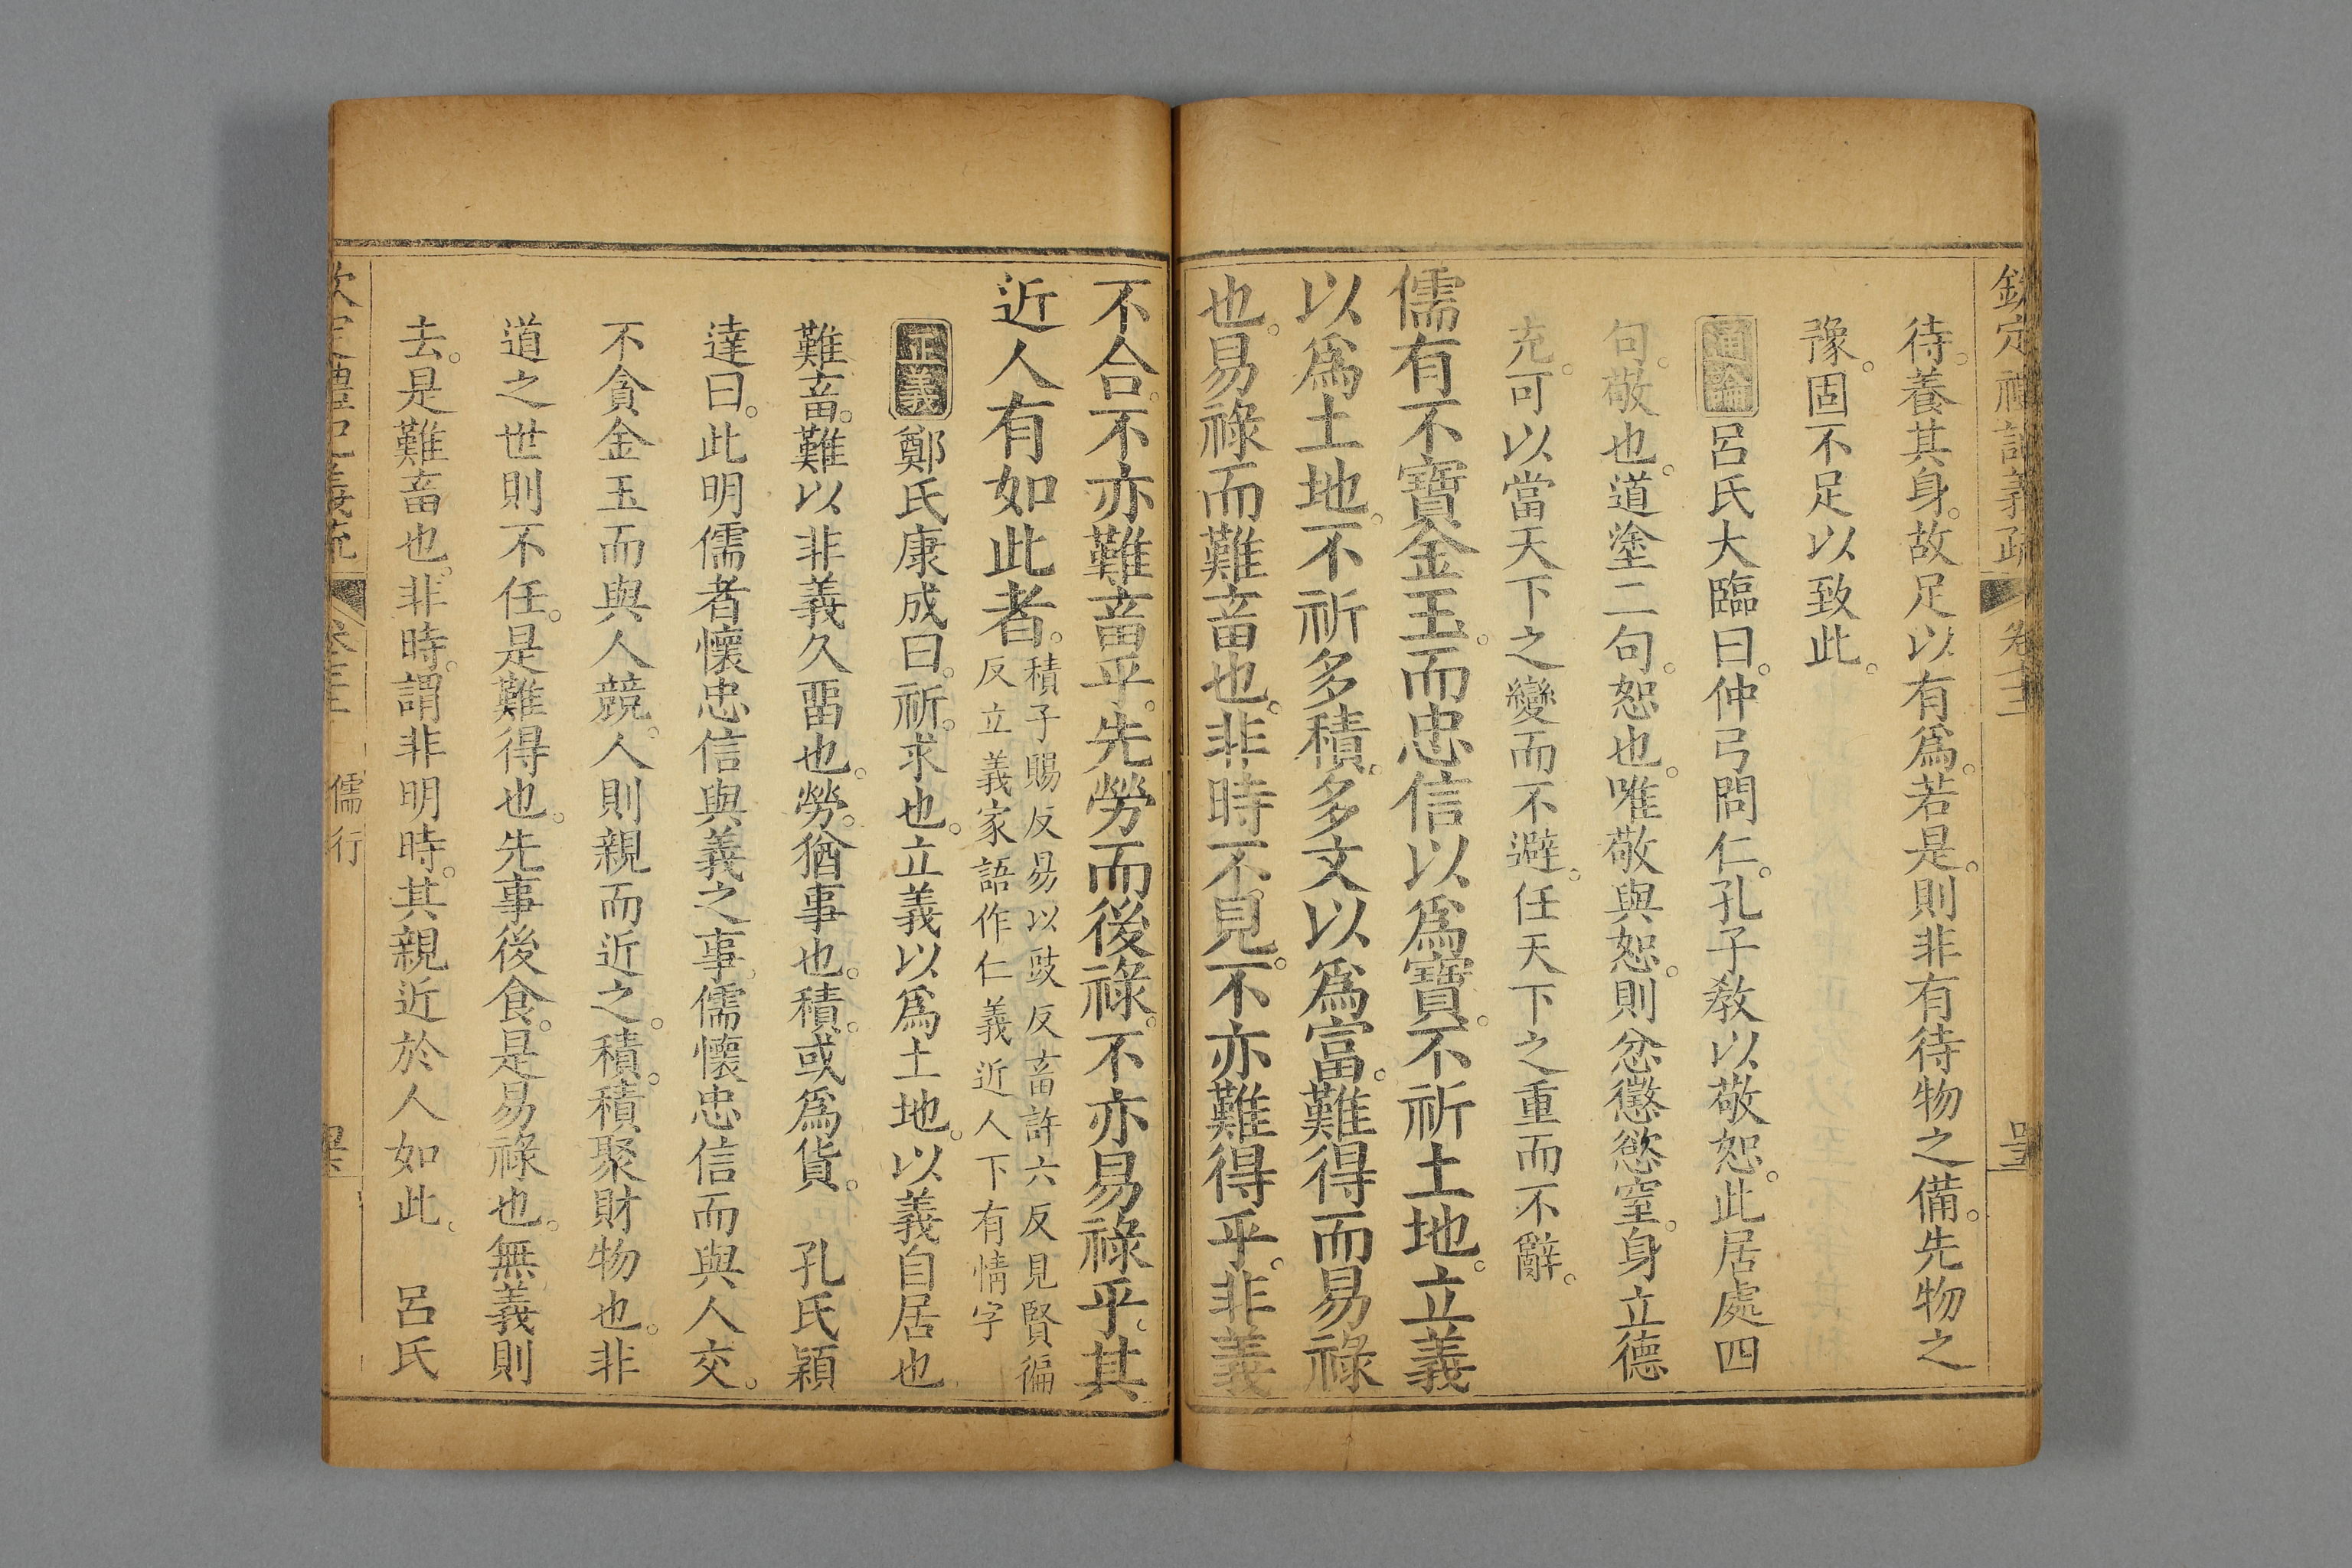 欽定禮記義疏 卷
待。養其身。故足以有爲。若是。則非有待物之備。先物之
豫。固不足以致此。
通論 呂氏大臨曰。仲弓問仁。孔子敎以敬恕。此居處四
句。敬也。道塗二句。恕也。唯敬與恕。則忿懲慾窒。身立德
充。可以當天下之變而不避。任天下之重而不辭。
儒有不寶金玉。而忠信以爲寶。不祈土地。立義
以爲土地。不祈多積。多文以爲富。難得而易祿
也。易祿而難畜也。非時不見。不亦難得乎。非義
不合。不亦難畜乎。先勞而後祿。不亦易祿乎。其
近人有如此者。
積子賜反易以豉反畜許六反見賢徧
反立義家語作仁義近人下有情字
正義 鄭氏康成曰。祈。求也。立義以爲土地。以義自居也
難畜。難以非義久畱也。勞。猶事也。積。或爲貨。 孔氏穎
達曰。此明儒者懷忠信與義之事。儒懷忠信而與人交。
不貪金玉而與人競。人則親而近之。積。積聚財物也。非
道之世則不任。是難得也。先事後食。是易祿也。無義則
去。是難畜也。非時。謂非明時。其親近於人如此。 呂氏
儒行